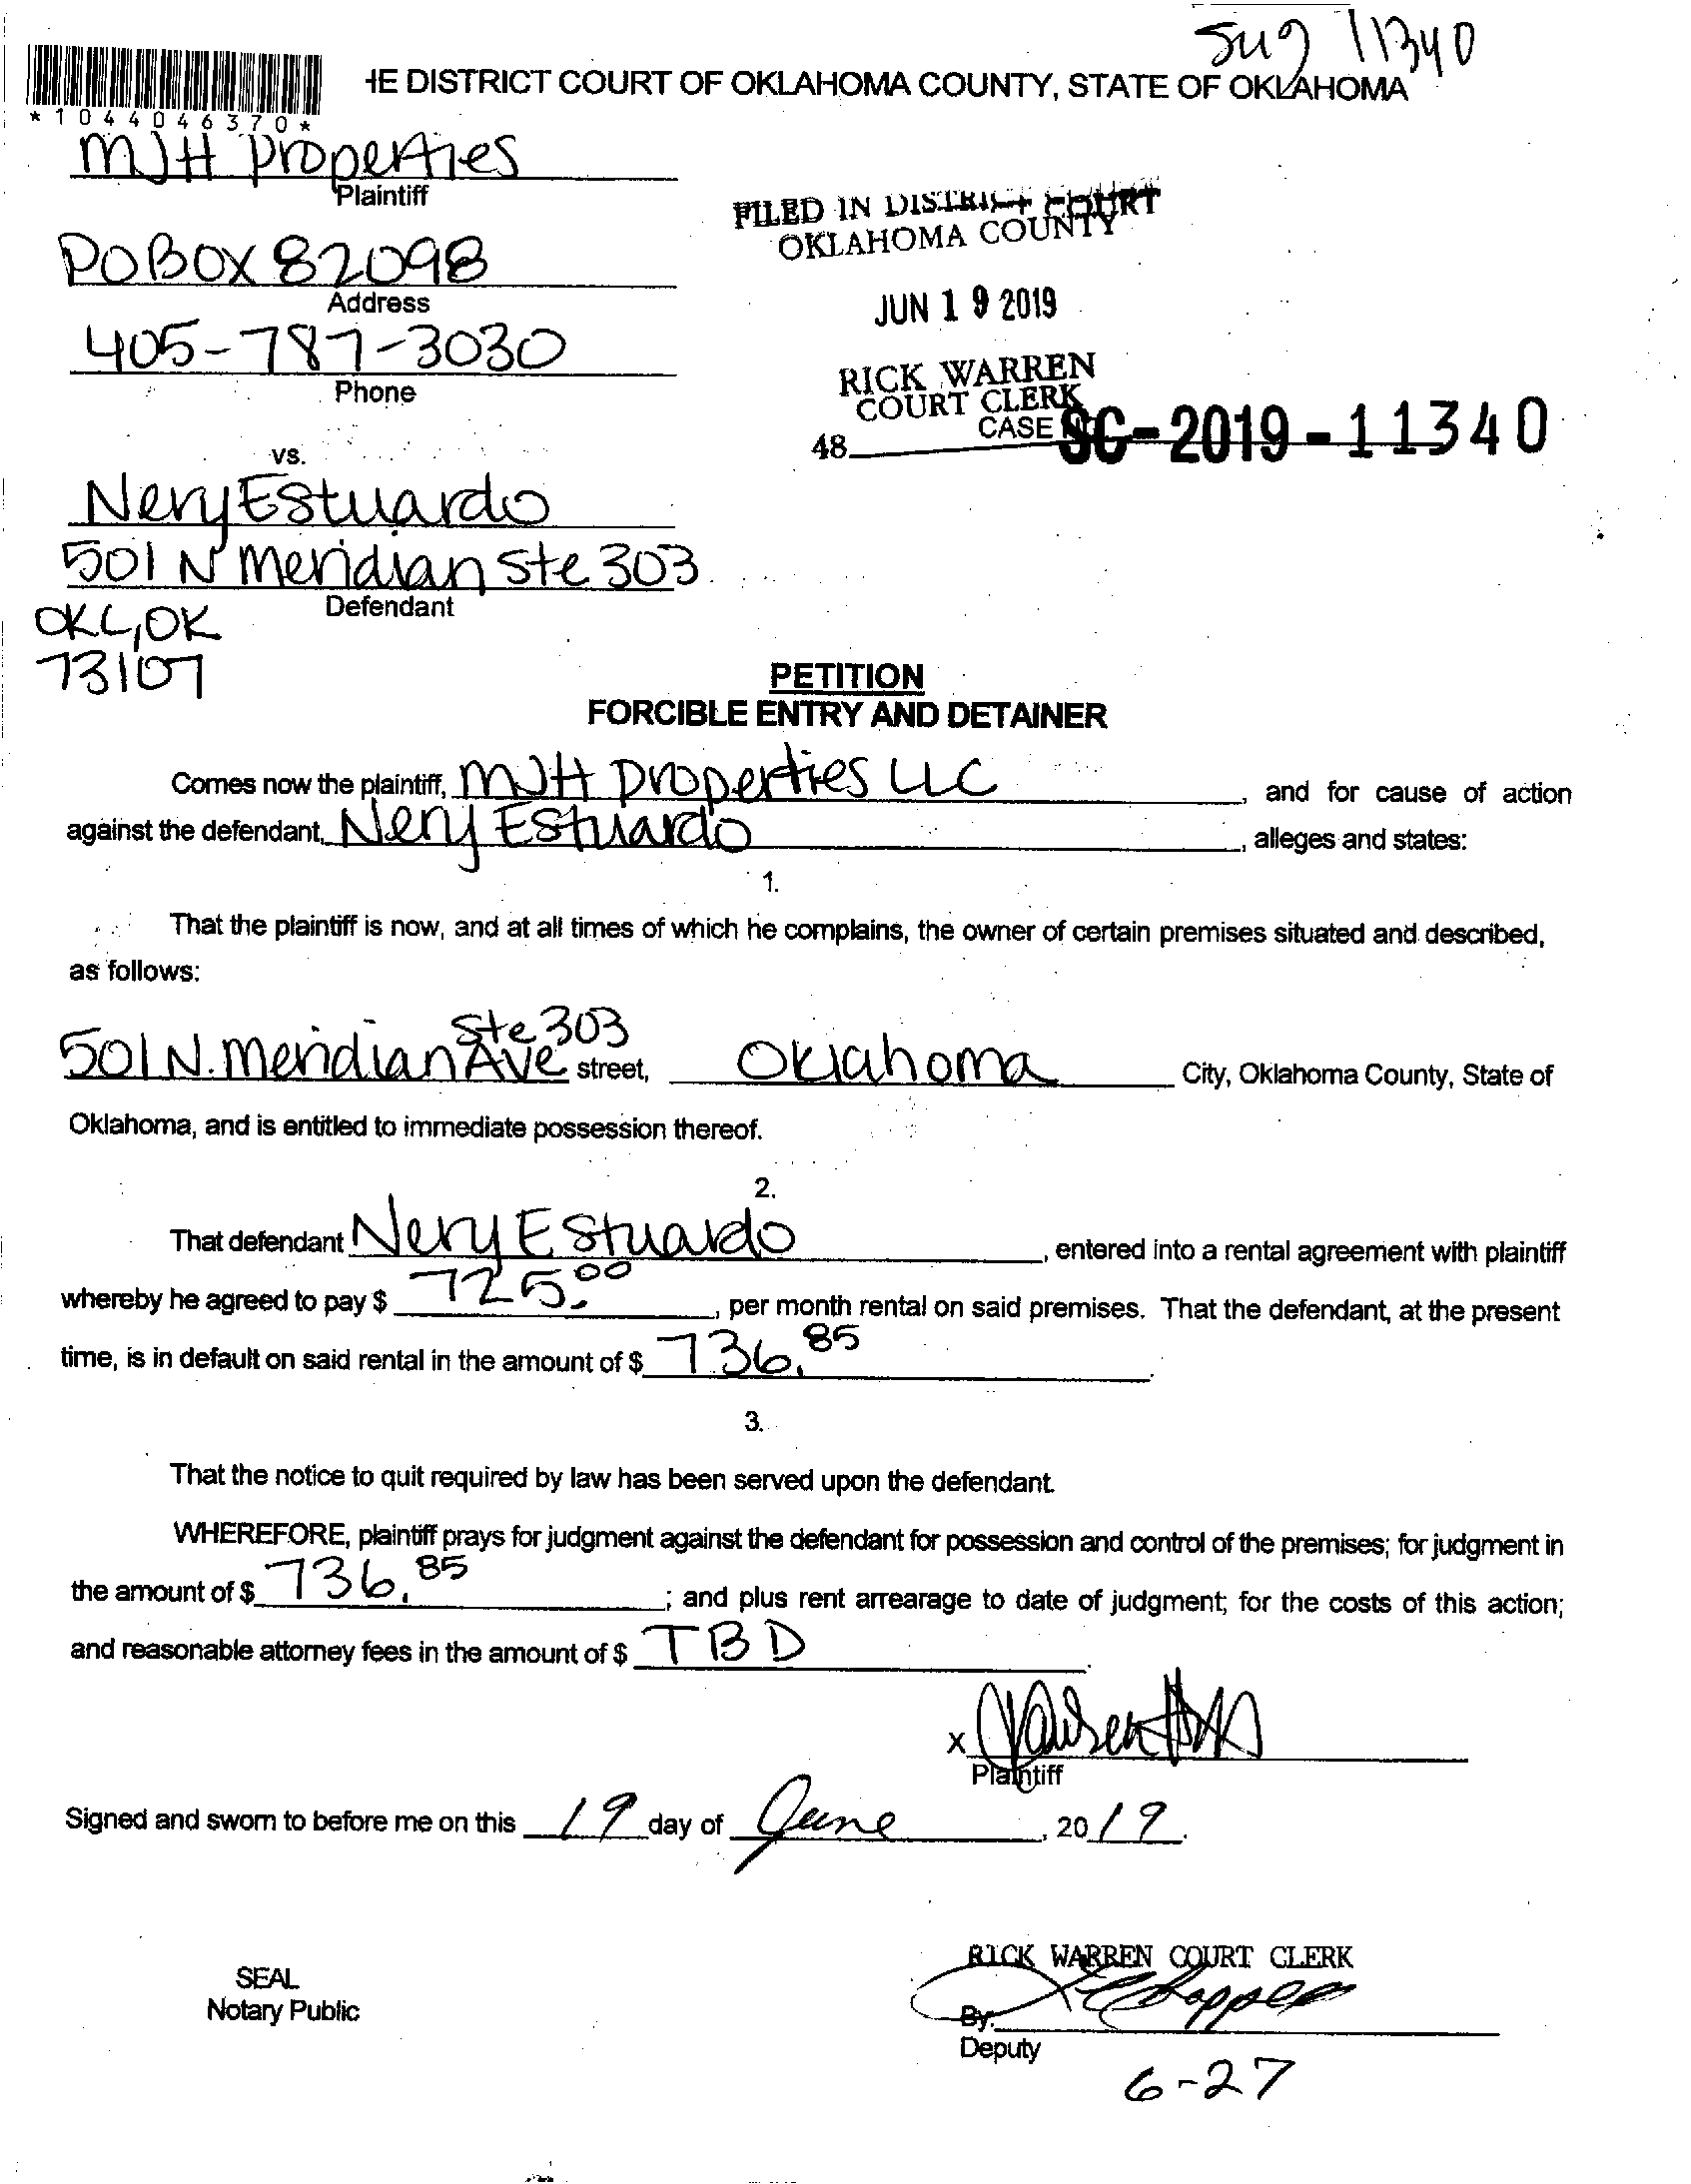 11340
HE DISTRICT COURT OF OKLAHOMA COUNTY, STATE OF OKLAHOMA
*1044046370*
MJH Properties
Plaintiff
PO BOX 82098
Address
405-787-3030
Phone
FILED IN DISTRICT COURT
OKLAHOMA COUNTY
JUN 19 2019
RICK WARREN
COURT CLERK
CASE
48
SC-2019-11340
vs.
Nery Estuardo
501 N Meridian Ste 303
Defendant
OKC, OK
73107
PETITION
FORCIBLE ENTRY AND DETAINER
Comes now the plaintiff, MJH Properties LLC, and for cause of action
against the defendant, Nery Estuardo, alleges and states:
1.
That the plaintiff is now, and at all times of which he complains, the owner of certain premises situated and described,
as follows:
Ste 303
501 N. Meridian Ave street, Oklahoma City, Oklahoma County, State of
Oklahoma, and is entitled to immediate possession thereof.
2.
That defendant Nery Estuardo, entered into a rental agreement with plaintiff
whereby he agreed to pay $ 725.00, per month rental on said premises. That the defendant, at the present
time, is in default on said rental in the amount of $ 736.85.
3.
That the notice to quit required by law has been served upon the defendant.
WHEREFORE, plaintiff prays for judgment against the defendant for possession and control of the premises; for judgment in
the amount of $ 736.85; and plus rent arrearage to date of judgment; for the costs of this action;
and reasonable attorney fees in the amount of $ TBD.
X
Plaintiff
Signed and sworn to before me on this 19 day of June, 2019.
RICK WARREN COURT CLERK
SEAL
Notary Public
By:
Deputy
6-27